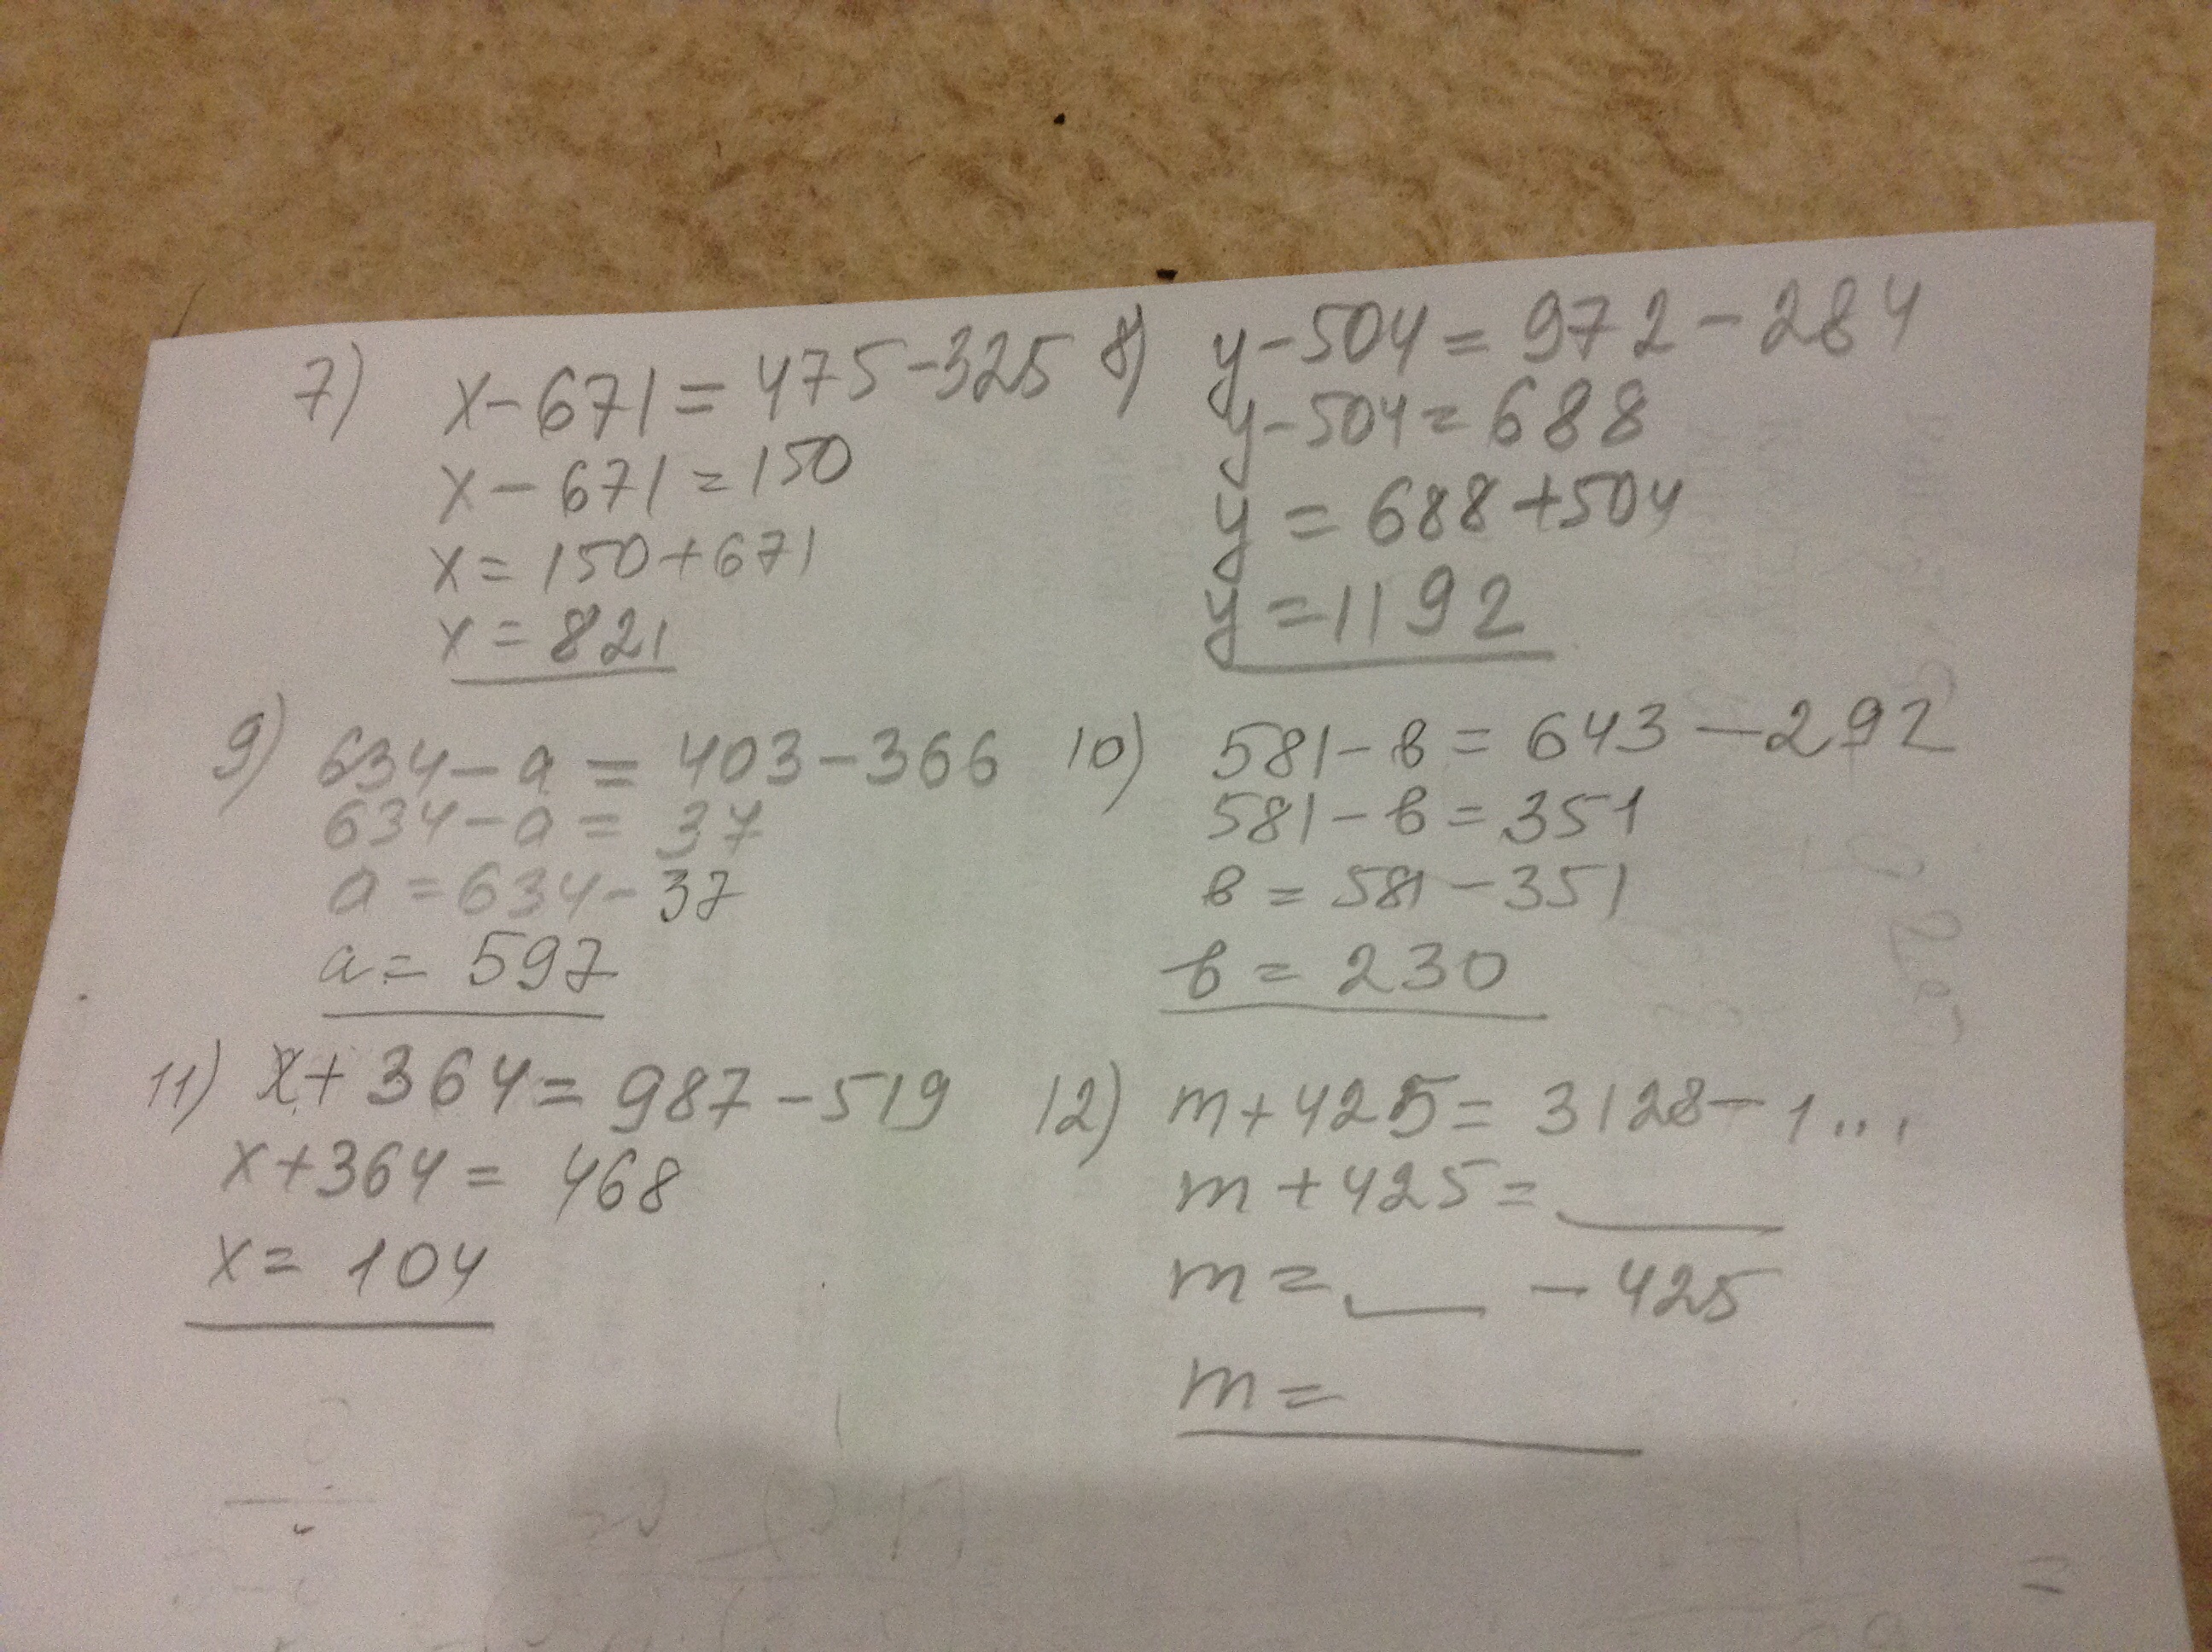 7) x-671=475-325
x-671=150
x=150+671
x=821
8) y-504=972-284
y-504=688
y=688+504
y=1192
9) 634-a=403-366
634-a=37
a=634-37
a=597
10) 581-в=643-292
581-в=351
в=581-351
в=230
11) x+364=987-519
x+364=468
x=104
12) m+425=3128-1...
m+425=___
m=___-425
m=